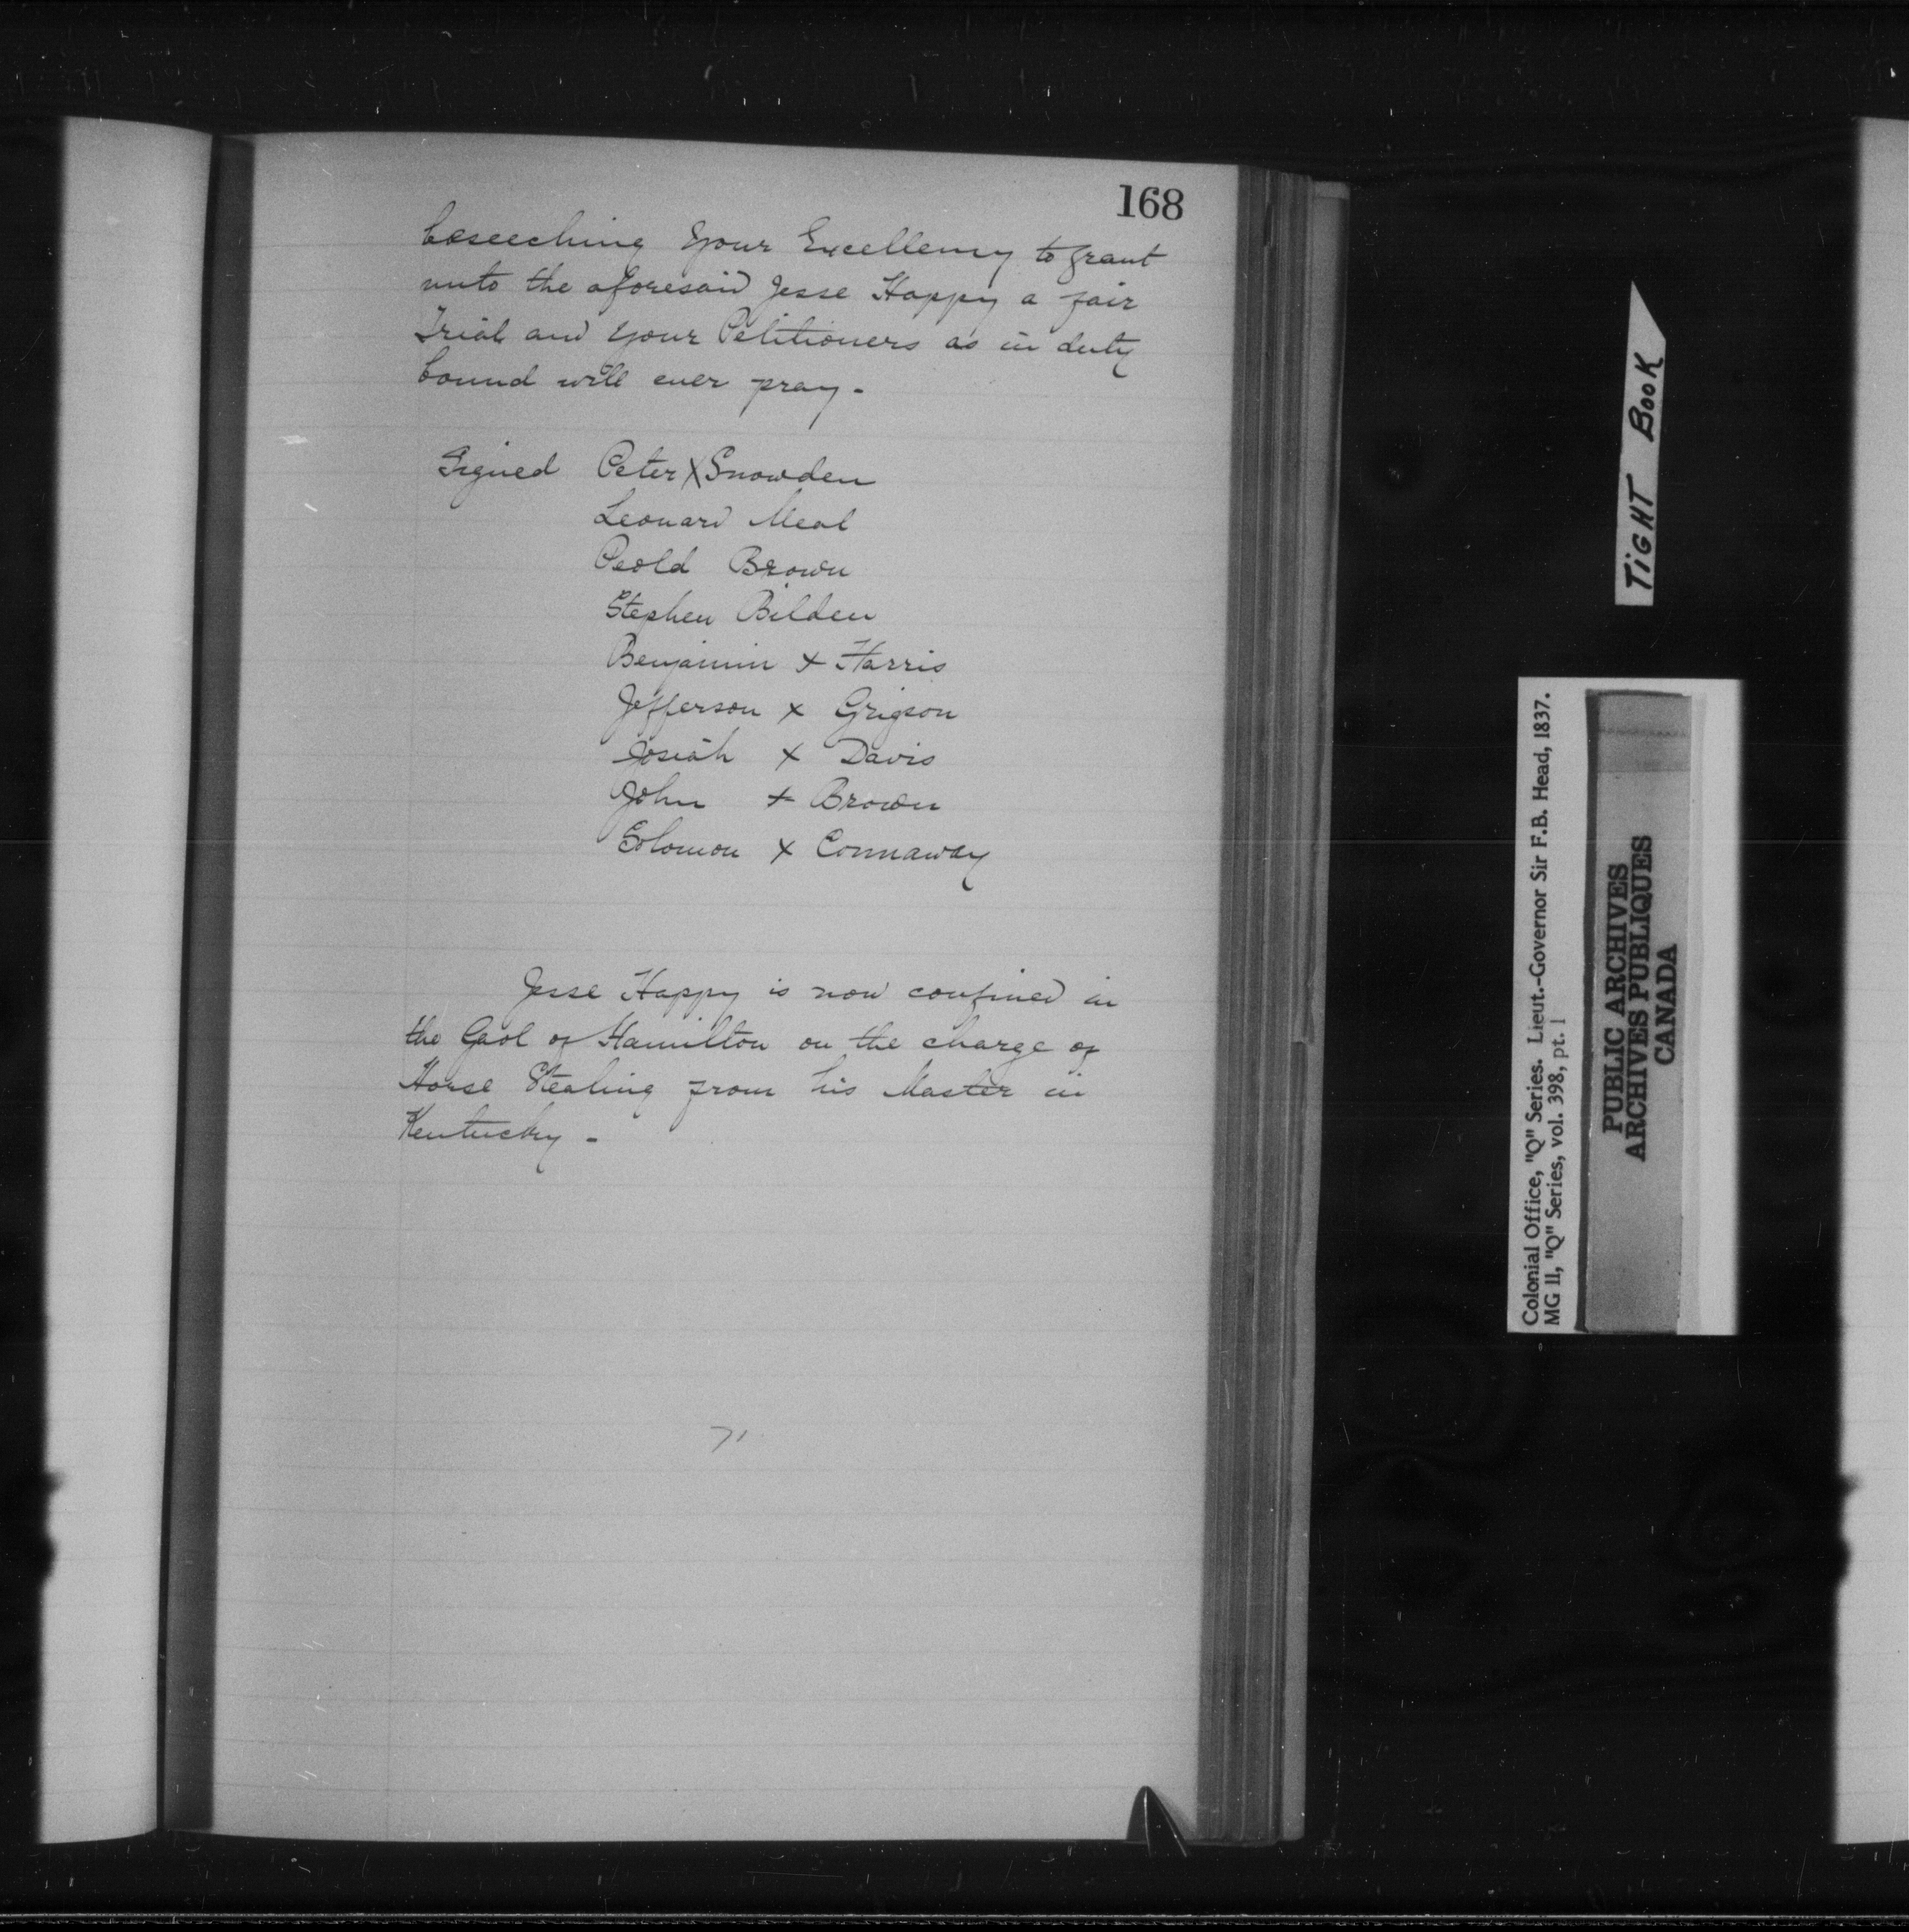 168
beseeching Your Excellency to grant
unto the aforesaid Jesse Happy a fair
Trial and Your Petitioners as in duty
bound will ever pray -
Signed Peter X Snowden
Leonard Meal
Peold Brown
Stephen Bilden
Benjamin x Harris
Jefferson x Grigson
Josiah x Davis
John + Brown
Solomon x Connaway
Jesse Happy is now confined in
the Gaol of Hamilton on the charge of
Horse Stealing from his Master in
Kentucky -
71
TiGHT BOOK
Colonial Office, "Q" Series. Lieut.-Governor Sir F.B. Head, 1837.
MG 11, "Q" Series, vol. 398, pt. 1
PUBLIC ARCHIVES
ARCHIVES PUBLIQUES
CANADA